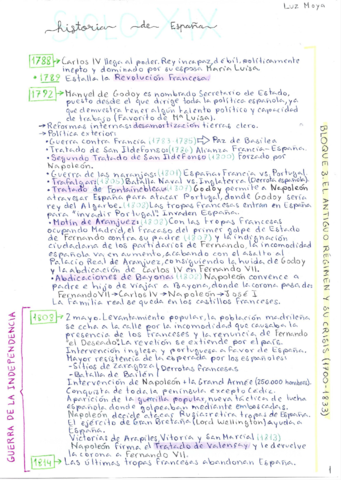 Luz Moya
historia de España
1788 → Carlos IV llega al poder. Rey incapaz, débil, políticamente
inepto y dominado por su esposa María Luisa.
• 1789 Estalla la Revolución Francesa.
1792 → Manuel de Godoy es nombrado Secretario de Estado,
puesto desde el que dirige toda la política española, ya
que demuestra tener algún talento político y capacidad
de trabajo (Favorito de Mª Luisa).
→ Reformas internas: desamortización tierras clero.
→ Política exterior:
• Guerra contra Francia Paz de Basilea
• Tratado de San Ildefonso Alianza Francia-España.
• Segundo Tratado de San Ildefonso Forzado por
Napoleón.
• Guerra de las naranjas España-Francia vs Portugal
• Trafalgar Batalla Naval vs Inglaterra (Derrota española).
• Tratado de Fontainebleau Godoy permite a Napoleón
atravesar España para atacar Portugal, donde Godoy sería
rey del Algarbe. las tropas Francesas entran en España
para "invadir Portugal". Invaden España.
• Motín de Aranjuez Con las tropas Francesas
ocupando Madrid, el fracaso del primer golpe de Estado
de Fernando contra su padre y la indignación
ciudadana de los partidarios de Fernando, la incomodidad
española va en aumento, acabando con el asalto al
Palacio Real de Aranjuez, consiguiendo la huida de Godoy
y la abdicación de Carlos IV en Fernando VII.
• Abdicaciones de Bayona Napoleón convence a
padre e hijo de viajar a Bayona, donde la corona pasa de:
Fernando VII → Carlos IV → Napoleón → José I
La familia real se queda en los castillos franceses.
1808 → 2 mayo. Levantamiento popular, la población madrileña
se echa a la calle por la incomodidad que causaba la
presencia de los franceses y la renuncia de Fernando
"el Deseado". La revelión se extiende por el país.
Intervención Inglesa y portuguesa a favor de España.
Mayor resistencia de la esperada por los españoles:
- Sitios de Zaragoza
- Batalla de Bailén
Derrotas Francesas
Intervención de Napoleón + la Grand Armée (250.000 hombres).
Conquista de toda la península excepto Cádiz.
Aparición de la guerrilla popular, nueva táctica de lucha
española donde golpeaban mediante emboscadas.
Napoleón decide atacar Rusia; retira tropas de España.
El ejército de Gran Bretaña (Lord Wellington) ayuda a
España.
Victorias de Arapiles, Vitoria y San Marcial (1813)
Napoleón firma el Tratado de Valençay y le devuelve
la corona a Fernando VII.
1814 → Las últimas tropas Francesas abandonan España.
GUERRA DE LA INDEPENDENCIA
BLOQUE 3. EL ANTIGUO RÉGIMEN Y SU CRISIS (1700-1833)
1